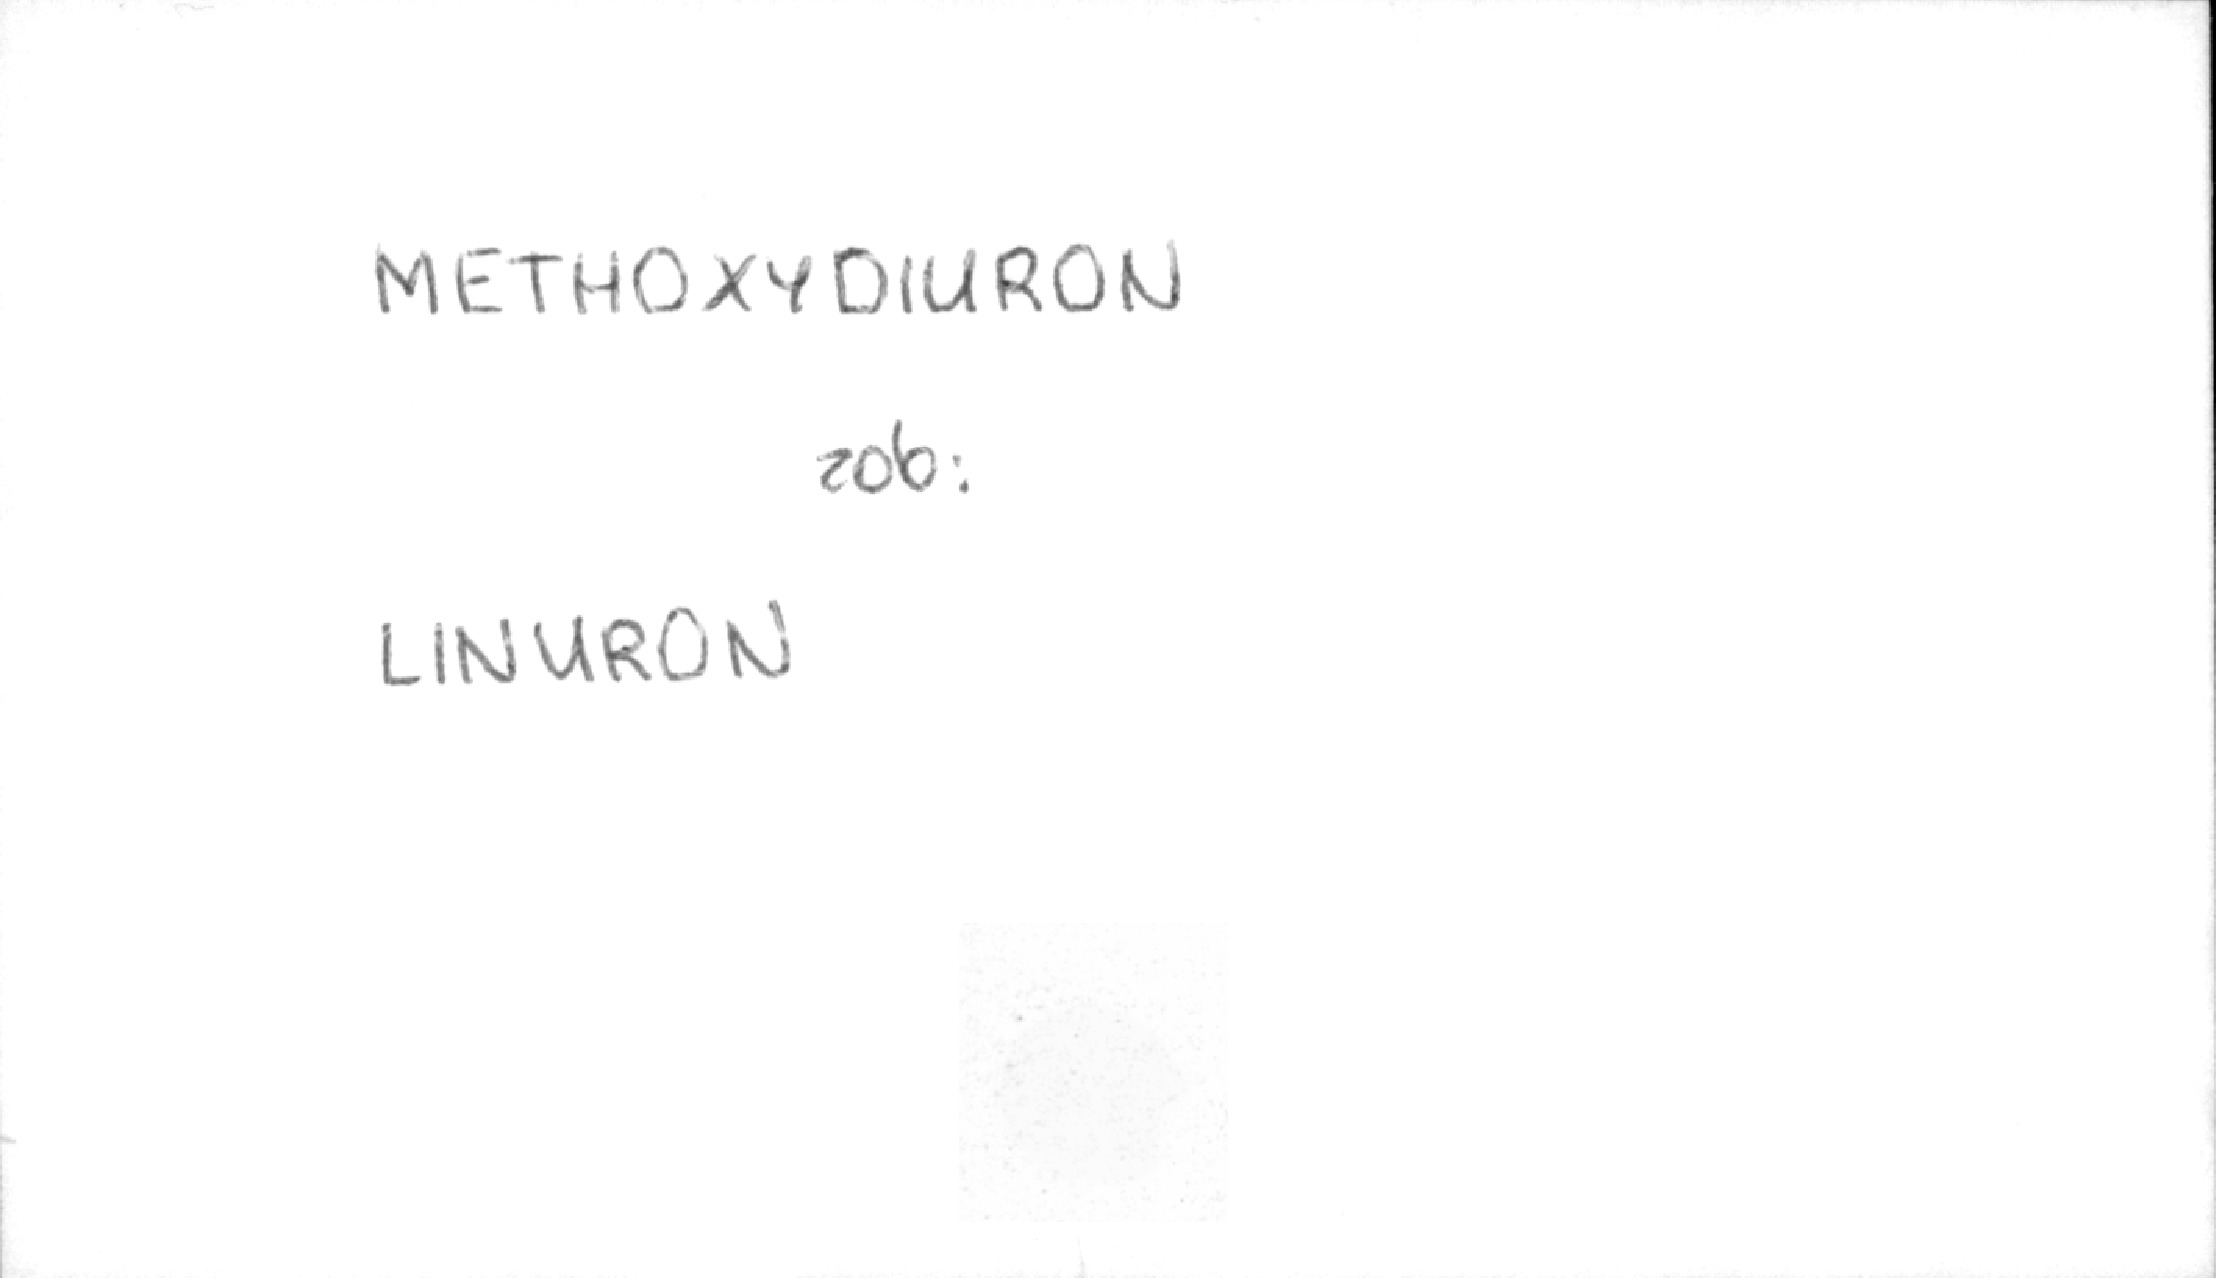 METHOXYDIURON
zob:
LINURON